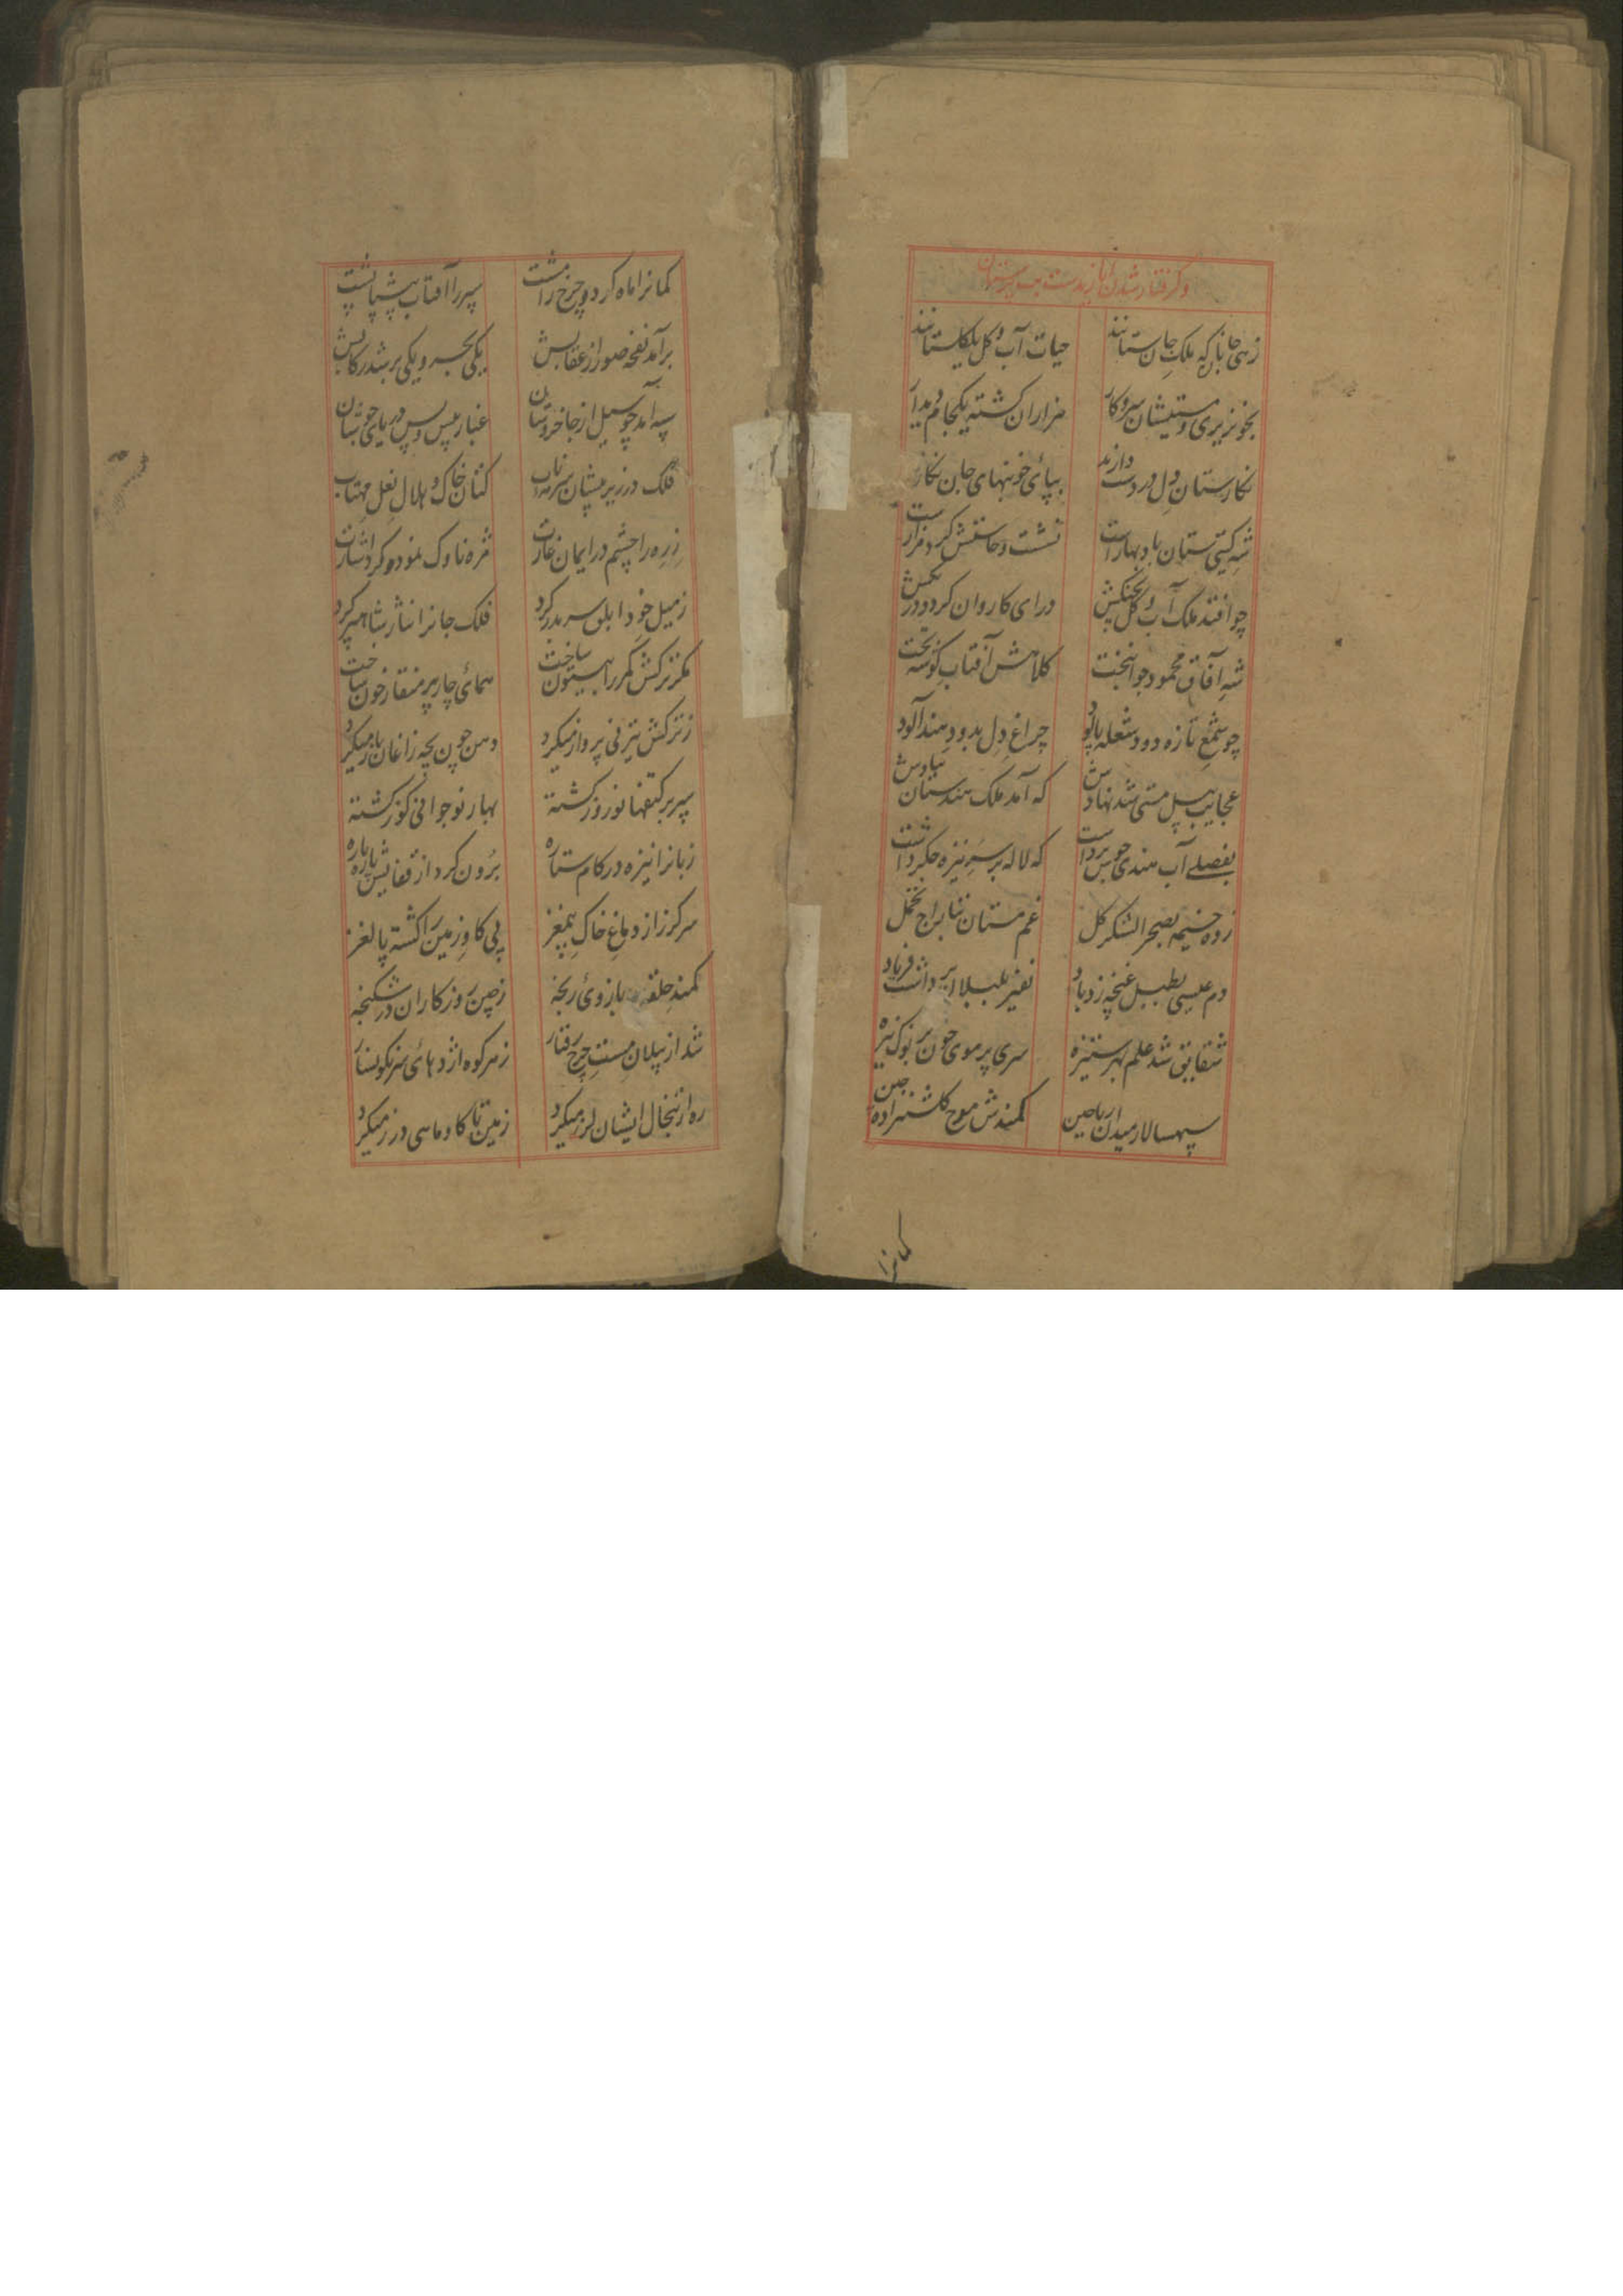 و گرفتار شدن ایاز بدست
زهی جانان که ملک جان ستانند حیات آب و گل یکلیک ستانند
بخونریزی و مستیشان سر و کار هزاران کشته یکجام دیدار
نکارستان دل در دست دارند بپای خونبهای جان نکار
شه کیتی ستان باد بهارست نشست و خاستش کرد
چو افتد ملک آب و کل بچنکش درای کاروان کرد و
شه آفاق محمود جوانبخت کلاهش آفتاب کوشه تخت
چو شمع تازه دود شعله پالود چراغ دل بدود هند آلود
عجایب پیل مستی شد نهادش که آمد ملک هندستان بیادش
بفصلی آب هندی جوس برداشت که لاله بر سر نیزه جکر داشت
زده خیمه بصحرا لشکر کل غم مستان بتاراج تحمل
دم عیسی بطبل غنچه زد باد نفیر بلبلان برداشت فریاد
شقایق شد علم بهر ستیزه سری پرموی خون بر نوک نیزه
سپهسالار میدان ریاحین کمندش موج کلشنزاده چین
کمانرا
کمانرا ماه کرد و چرخ را مشت سپر را آفتاب پیش پاپشت
برآمد نفخه صور از عقابش یکی بحر و یکی بر شد رکابش
سپه آمد چو سیل از جا خروشان غبار پیش و پس دریای جوشان
فلک در زیر میشان کتان خاک و هلال نعل مهتاب
زره را چشم در ایمان غارت مژه ناوک نموده کرد اشارت
ز میل خود ابلق سر بدر کرد فلک جانرا نثار شاهپر کرد
مکر ترکش کمر را بیستون ساخت همای چار پر منقار خون ساخت
ز ترکش تیر نی پرواز میکرد دهن چون بچه زاغان باز میکرد
سپر بر کتفها نوروز کشته بهار نوجوانی کوز کشته
زبانرا نیزه در کام ستاره برون کرد از قفایش پاره پاره
سر کرز از دماغ خاک بیمغز پی کاو زمین را کشته پالغز
کمند حلقه بازوی رنجه ز چین روزکاران در شکنجه
شد از پیلان مست چرخ رفتار ز هر کوه اژدهای سرنکونسار
ره از خلخال ایشان لرز میکرد زمین تا کاو ماهی درز میکرد